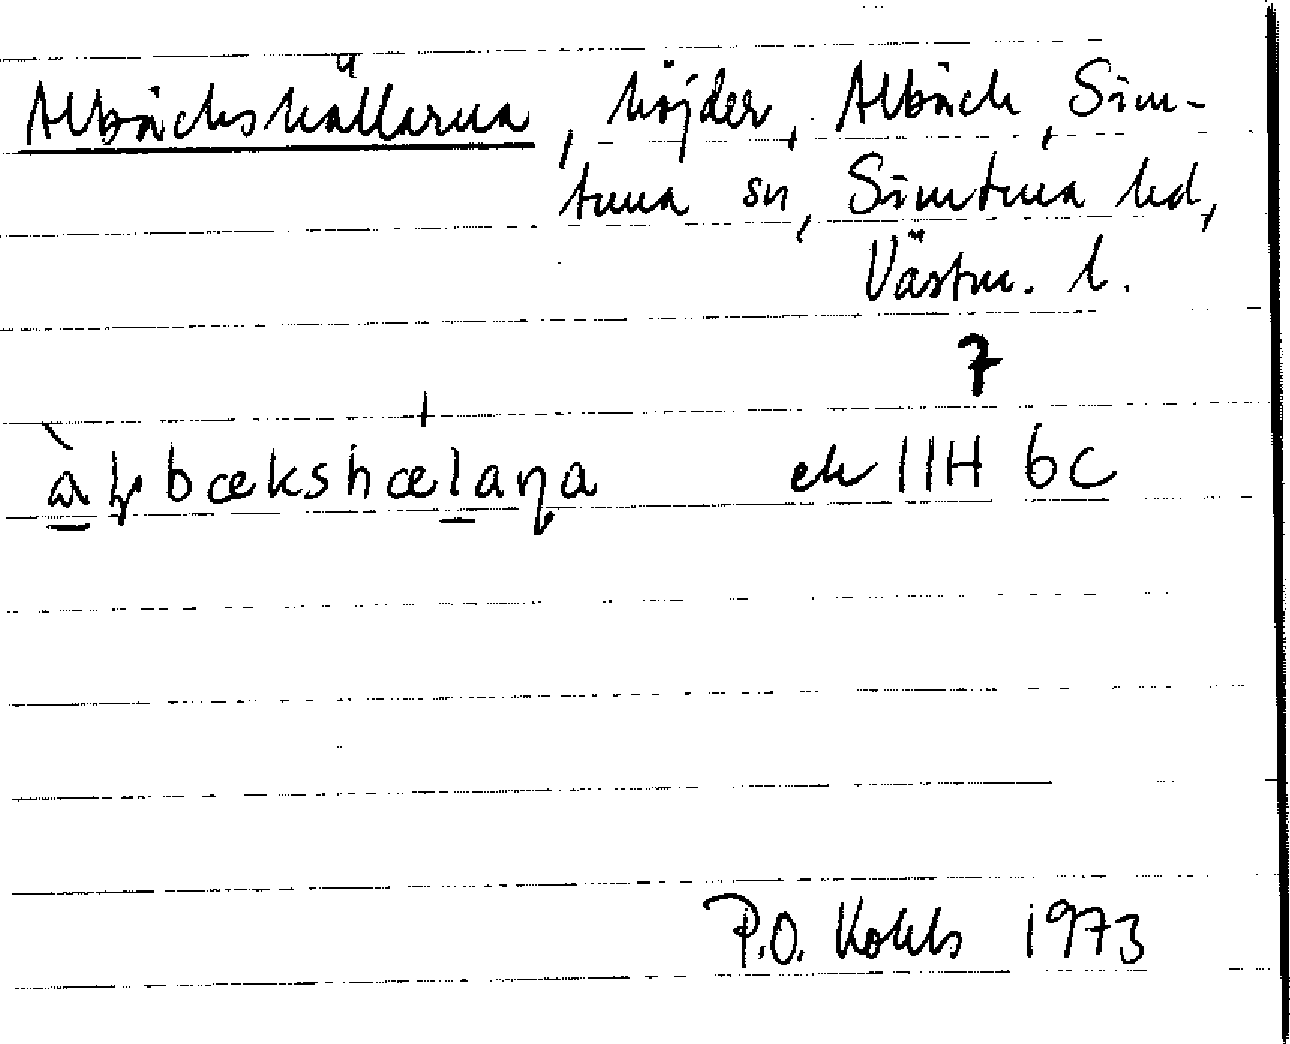 Albäckshällarna, höjder, Albäck, Sim-
tuna sn, Simtuna hd,
Västm. l.
7
bækshælaṇa ek 11H 6c
P.O. 1973